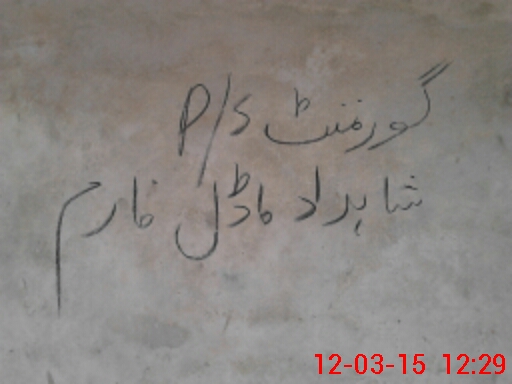 گورمنٹ P/S
شاہداد ماڈل فارم
12-03-15 12:29